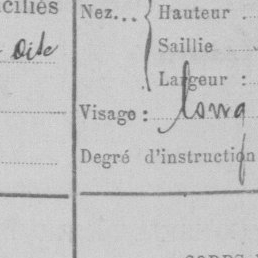 ciliés
Oise
Nez... Hauteur
Saillie
Largeur :
Visage : long
Degré d'instruction